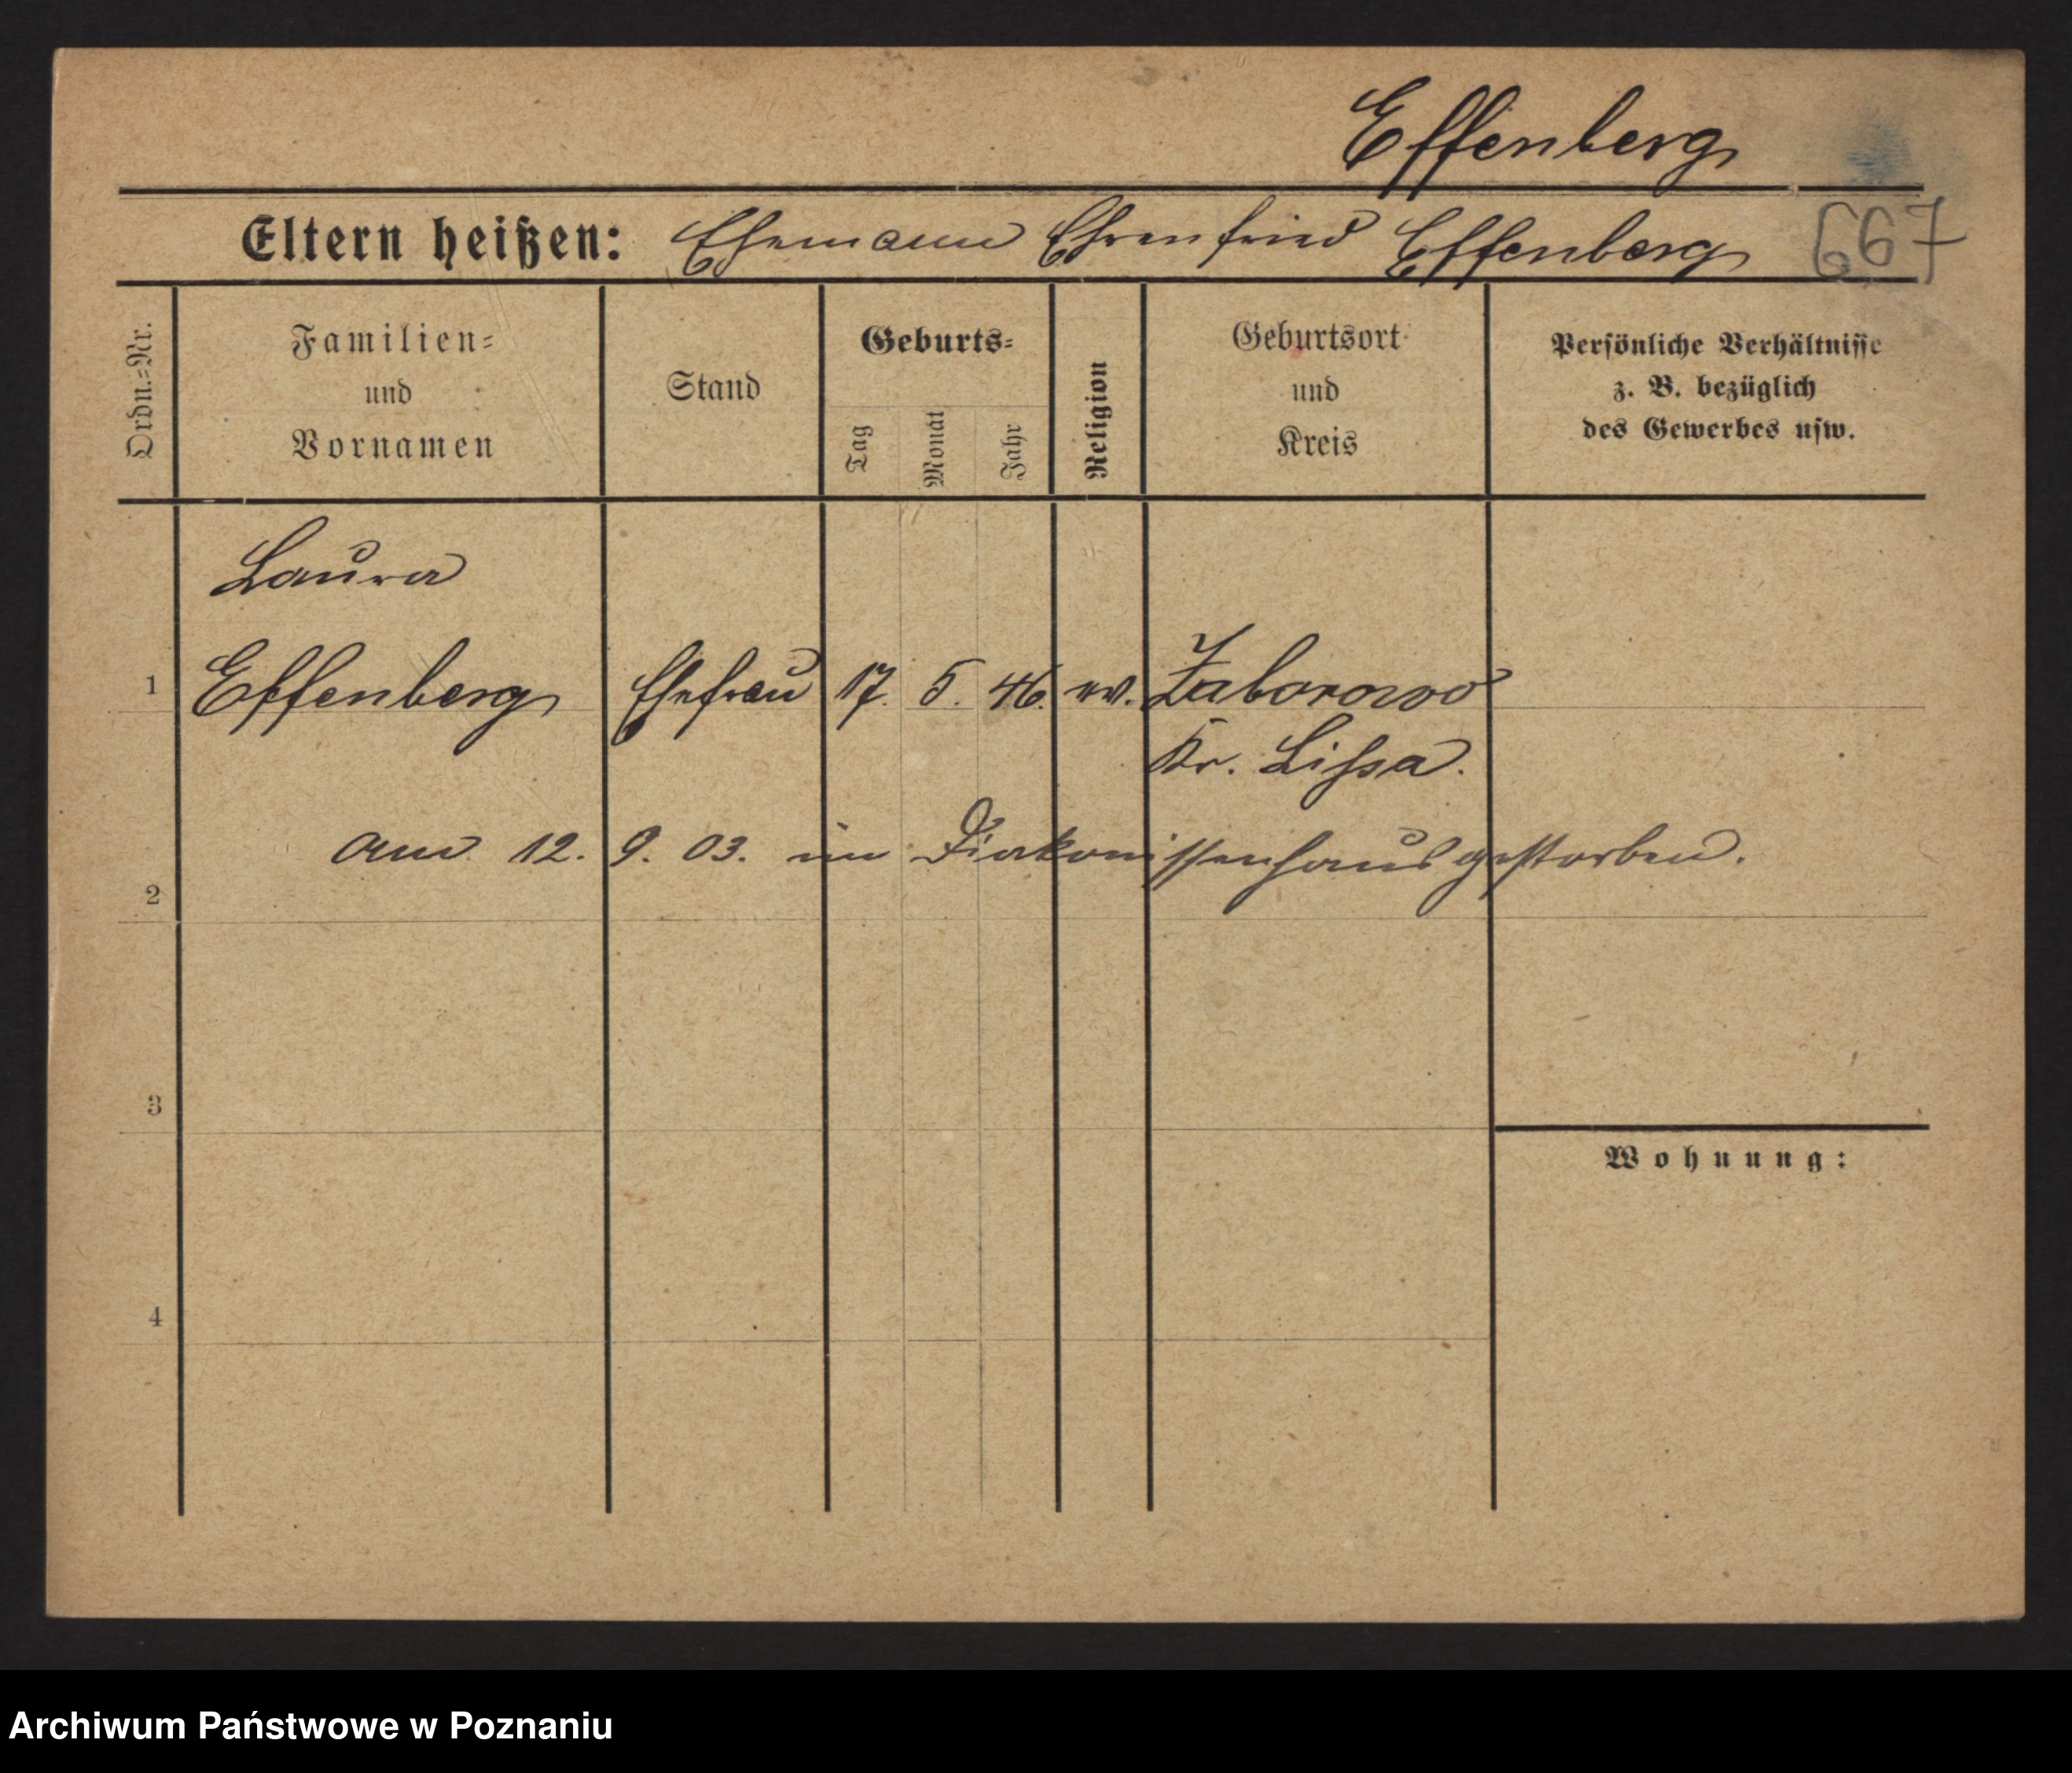 Effenberg
Eltern heißen: Ehemann Ehrenfried Effenberg 667
Ordn.=Nr.
Familien=
und
Vornamen
Stand
Geburts=
Tag
Monat
Jahr
Religion
Geburtsort
und
Kreis
Persönliche Verhältnisse
z. B. bezüglich
des Gewerbes usw.
Laura
1 Effenberg Ehefrau 17. 5. 46. ev. Zaborowo
Kr. Lissa.
am 12. 9. 03. im Diakonissenhaus gestorben.
2
3
Wohnung:
4
Archiwum Państwowe w Poznaniu